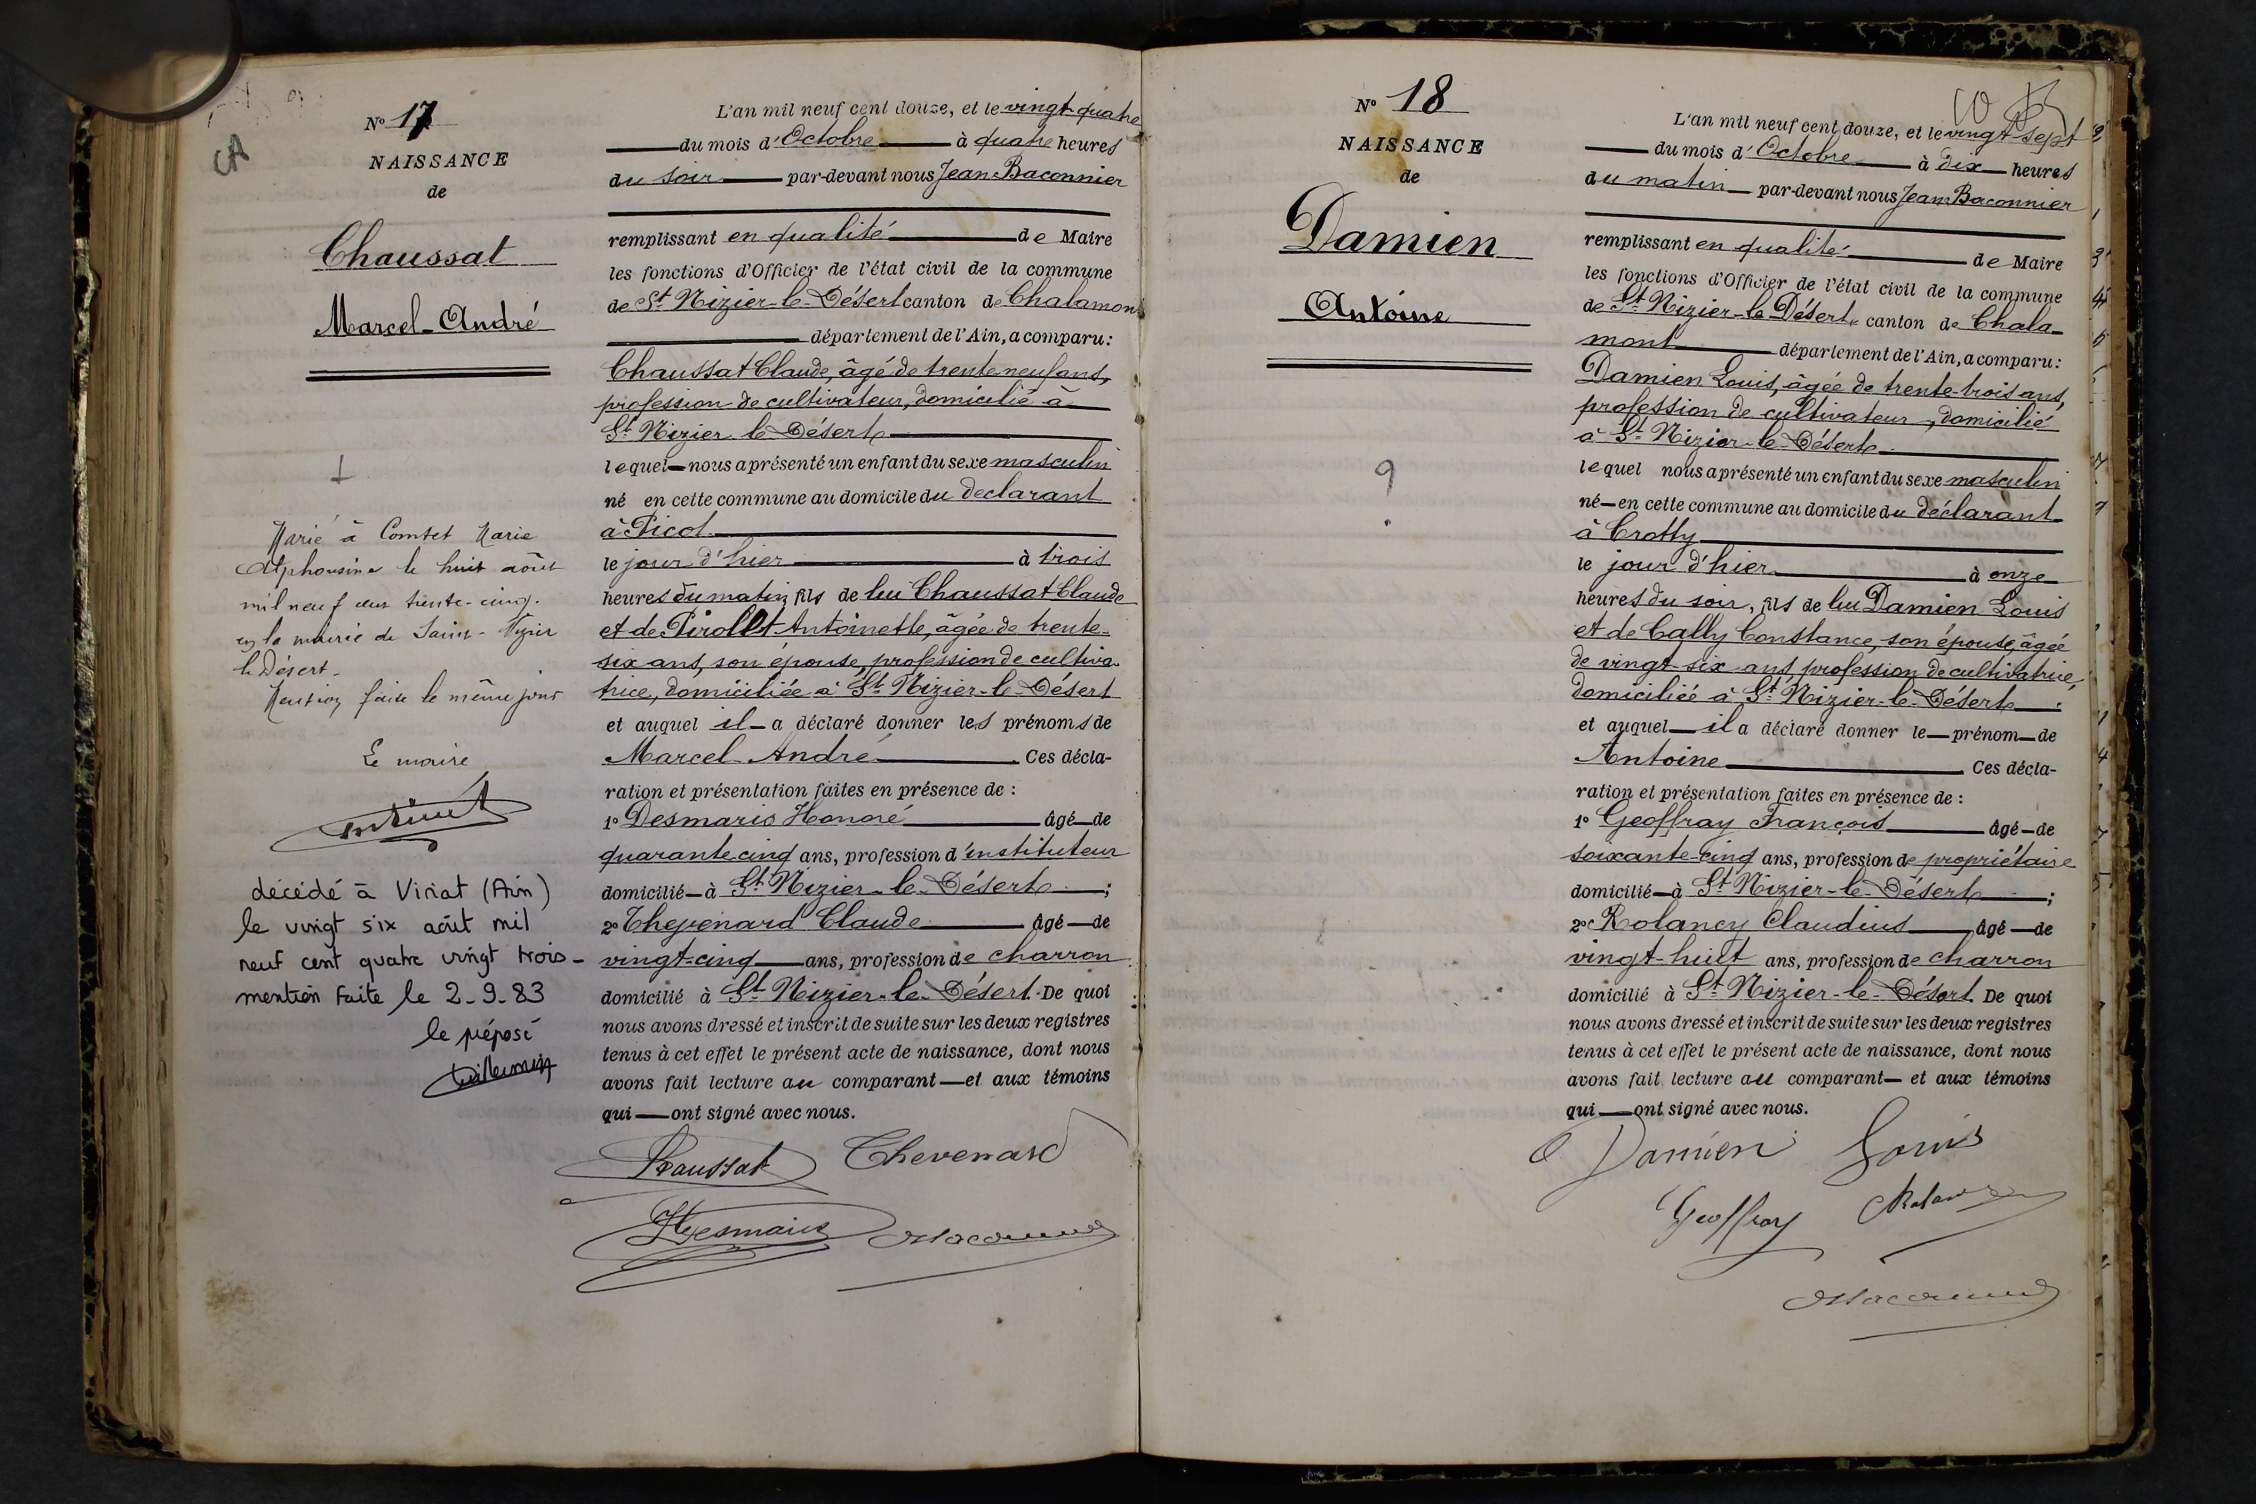 CA
N° 17
NAISSANCE
de
Chaussat
Marcel-André
Marié à Comtet Marie
Alphonsine le huit août
mil neuf cent trente-cinq.
en la mairie de Saint-Nizier
le Désert.
Mention faite le même jour
Le maire
décédé à Viriat (Ain)
le vingt six août mil
neuf cent quatre vingt trois-
mention faite le 2-9-83
le préposé
L'an mil neuf cent douze, et le vingt-quatre
du mois d'Octobre à quatre heures
du soir par-devant nous Jean Baconnier
remplissant en qualité de Maire
les fonctions d'Officier de l'état civil de la commune
de St Nizier-le-Désert canton de Chalamont
département de l'Ain, a comparu:
Chaussat Claude, âgé de trente neuf ans,
profession de cultivateur, domicilié à
St Nizier-le-Désert
lequel nous a présenté un enfant du sexe masculin
né en cette commune au domicile du declarant
à Picot
le jour d'hier à trois
heures du matin, fils de lui Chaussat Claude
et de Pirollet Antoinette, âgée de trente-
six ans, son épouse, profession de cultiva-
trice, domiciliée à St Nizier-le-Désert
et auquel il a déclaré donner les prénoms de
Marcel-André Ces décla-
ration et présentation faites en présence de :
1° Desmaris Honoré âgé de
quarante-cinq ans, profession d'instituteur
domicilié à St Nizier-le-Désert ;
2° Chevenard Claude âgé de
vingt-cinq ans, profession de charron
domicilié à St Nizier-le-Désert. De quoi
nous avons dressé et inscrit de suite sur les deux registres
tenus à cet effet le présent acte de naissance, dont nous
avons fait lecture au comparant et aux témoins
qui ont signé avec nous.
Chaussat Chevenard
N° 18
NAISSANCE
de
Damien
Antoine
L'an mil neuf cent douze, et le vingt-sept
du mois d'Octobre à dix heures
du matin par-devant nous Jean Baconnier
remplissant en qualité de Maire
les fonctions d'Officier de l'état civil de la commune
de St Nizier-le-Désert canton de Chala-
mont département de l'Ain, a comparu:
Damien Louis, âgée de trente-trois ans,
profession de cultivateur, domicilié
à St Nizier-le-Désert
lequel nous a présenté un enfant du sexe masculin
né en cette commune au domicile du déclarant
à Crotty
le jour d'hier à onze
heures du soir, fils de lui Damien Louis
et de Cally Constance, son épouse, âgée
de vingt-six ans, profession de cultivatrice,
domiciliée à St Nizier-le-Désert
et auquel il a déclaré donner le prénom de
Antoine Ces décla-
ration et présentation faites en présence de :
1° Geoffray François âgé de
soixante-cinq ans, profession de propriétaire
domicilié à St Nizier-le-Désert ;
2° Rolancy Claudius âgé de
vingt-huit ans, profession de charron
domicilié à St Nizier-le-Désert. De quoi
nous avons dressé et inscrit de suite sur les deux registres
tenus à cet effet le présent acte de naissance, dont nous
avons fait lecture au comparant et aux témoins
qui ont signé avec nous.
Damien Louis
Geoffray